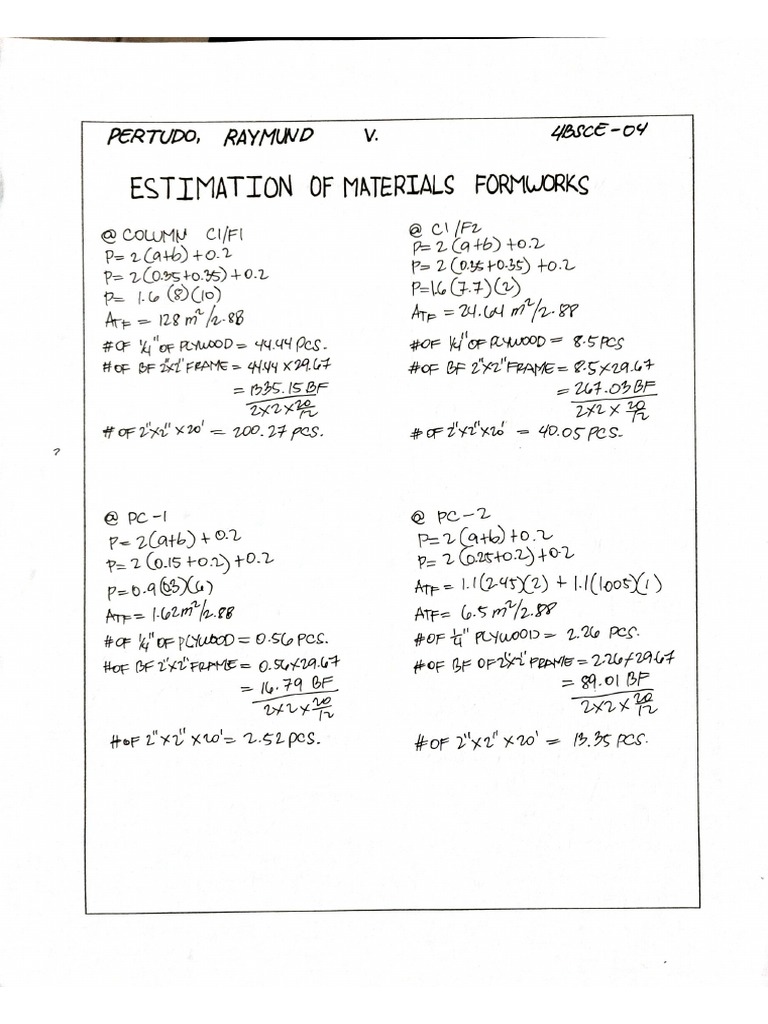 PERTUDO, RAYMUND V. 4BSCE-04
ESTIMATION OF MATERIALS FORMWORKS
@ COLUMN C1/F1
P= 2(a+b)+0.2
P= 2(0.35+0.35)+0.2
P= 1.6 (8)(10)
ATF = 128 m²/2.88
# OF 1/4" OF PLYWOOD = 44.44 PCS.
# OF BF 2"x2" FRAME = 44.44 x 29.67
= 1335.15 BF
2x2x 20/12
# OF 2"x2" x 20' = 200.27 PCS.
@ C1/F2
P= 2(a+b)+0.2
P= 2(0.35+0.35)+0.2
P=1.6(7.7)(2)
ATF = 24.64 m²/2.88
# OF 1/4" OF PLYWOOD = 8.5 PCS
# OF BF 2"x2" FRAME = 8.5 x 29.67
= 267.03 BF
2x2 x 20/12
# OF 2"x2"x20' = 40.05 PCS.
@ PC-1
P= 2(a+b)+0.2
P= 2(0.15+0.2)+0.2
P= 0.9(0.3)(6)
ATF = 1.62m²/2.88
# OF 1/4" OF PLYWOOD = 0.56 PCS.
# OF BF 2"x2" FRAME = 0.56x29.67
= 16.79 BF
2x2x 20/12
# OF 2"x2" x20' = 2.52 PCS.
@ PC-2
P= 2(a+b)+0.2
P= 2(0.25+0.2)+0.2
ATF = 1.1(2.45)(2) + 1.1(1.005)(1)
ATF= 6.5 m²/2.88
# OF 1/4" PLYWOOD = 2.26 PCS.
# OF BF OF 2"x2" FRAME = 2.26x29.67
= 89.01 BF
2x2x 20/12
# OF 2"x2" x20' = 13.35 PCS.